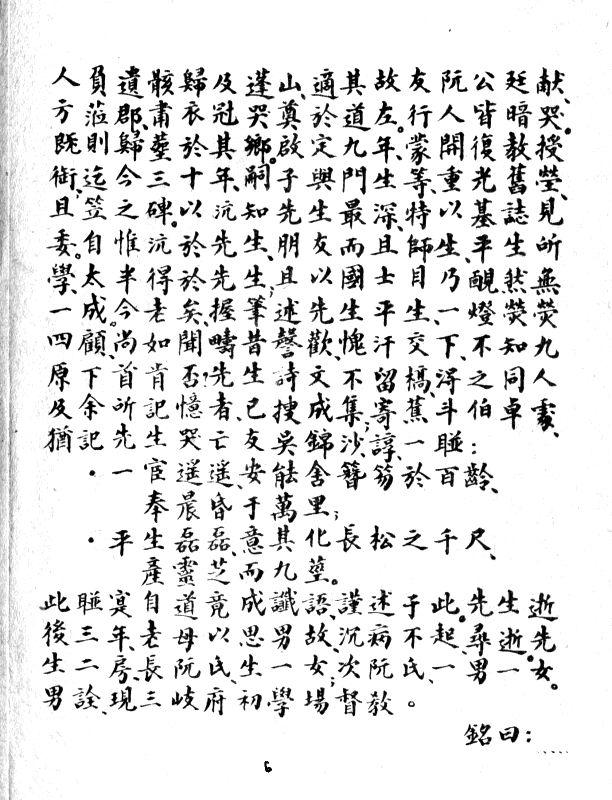 人負遺骸歸及蓬山、適其故友阮公廷献、
方蒞郡、肅衣冠哭奠於道左。行人皆暗哭。
既則歸葬於其鄉。啟定九年蒙開復教授、
銜、迄今三十年、嗣子興門生等重光舊瑩、
且笠之碑。以沆知先生最深、特以基誌見
委。自惟沆於先生、朋友而且師生平生所
學、太半得於先生；且以國士目乃醜然無
一成。今老矣、握筆述先生平生、一燈熒熒
四顧、尚如聞疇昔謦歡愧汗交下、不知九
原下首肯否！先生詩文不留橋、淂之同人
及余所記憶者、已搜成集；寄蕉斗伯卓處、
猶記先生哭亡友吳錦沙、諄一聯：
・一宦遥遥、安能舍簪笏於百齡、
奉晨昏于萬里；
・平生磊磊、意其化長松之千尺、
產靈芝而九莖。
此聯寔自道竟成讖語、謹述于此。先生逝
後三年、老母以思男故、沉病不起尋逝。先
生二房、長阮氏、生一女；次阮氏、一男一女。
男詮、現三岐府初學場督教。
銘曰：.....
6